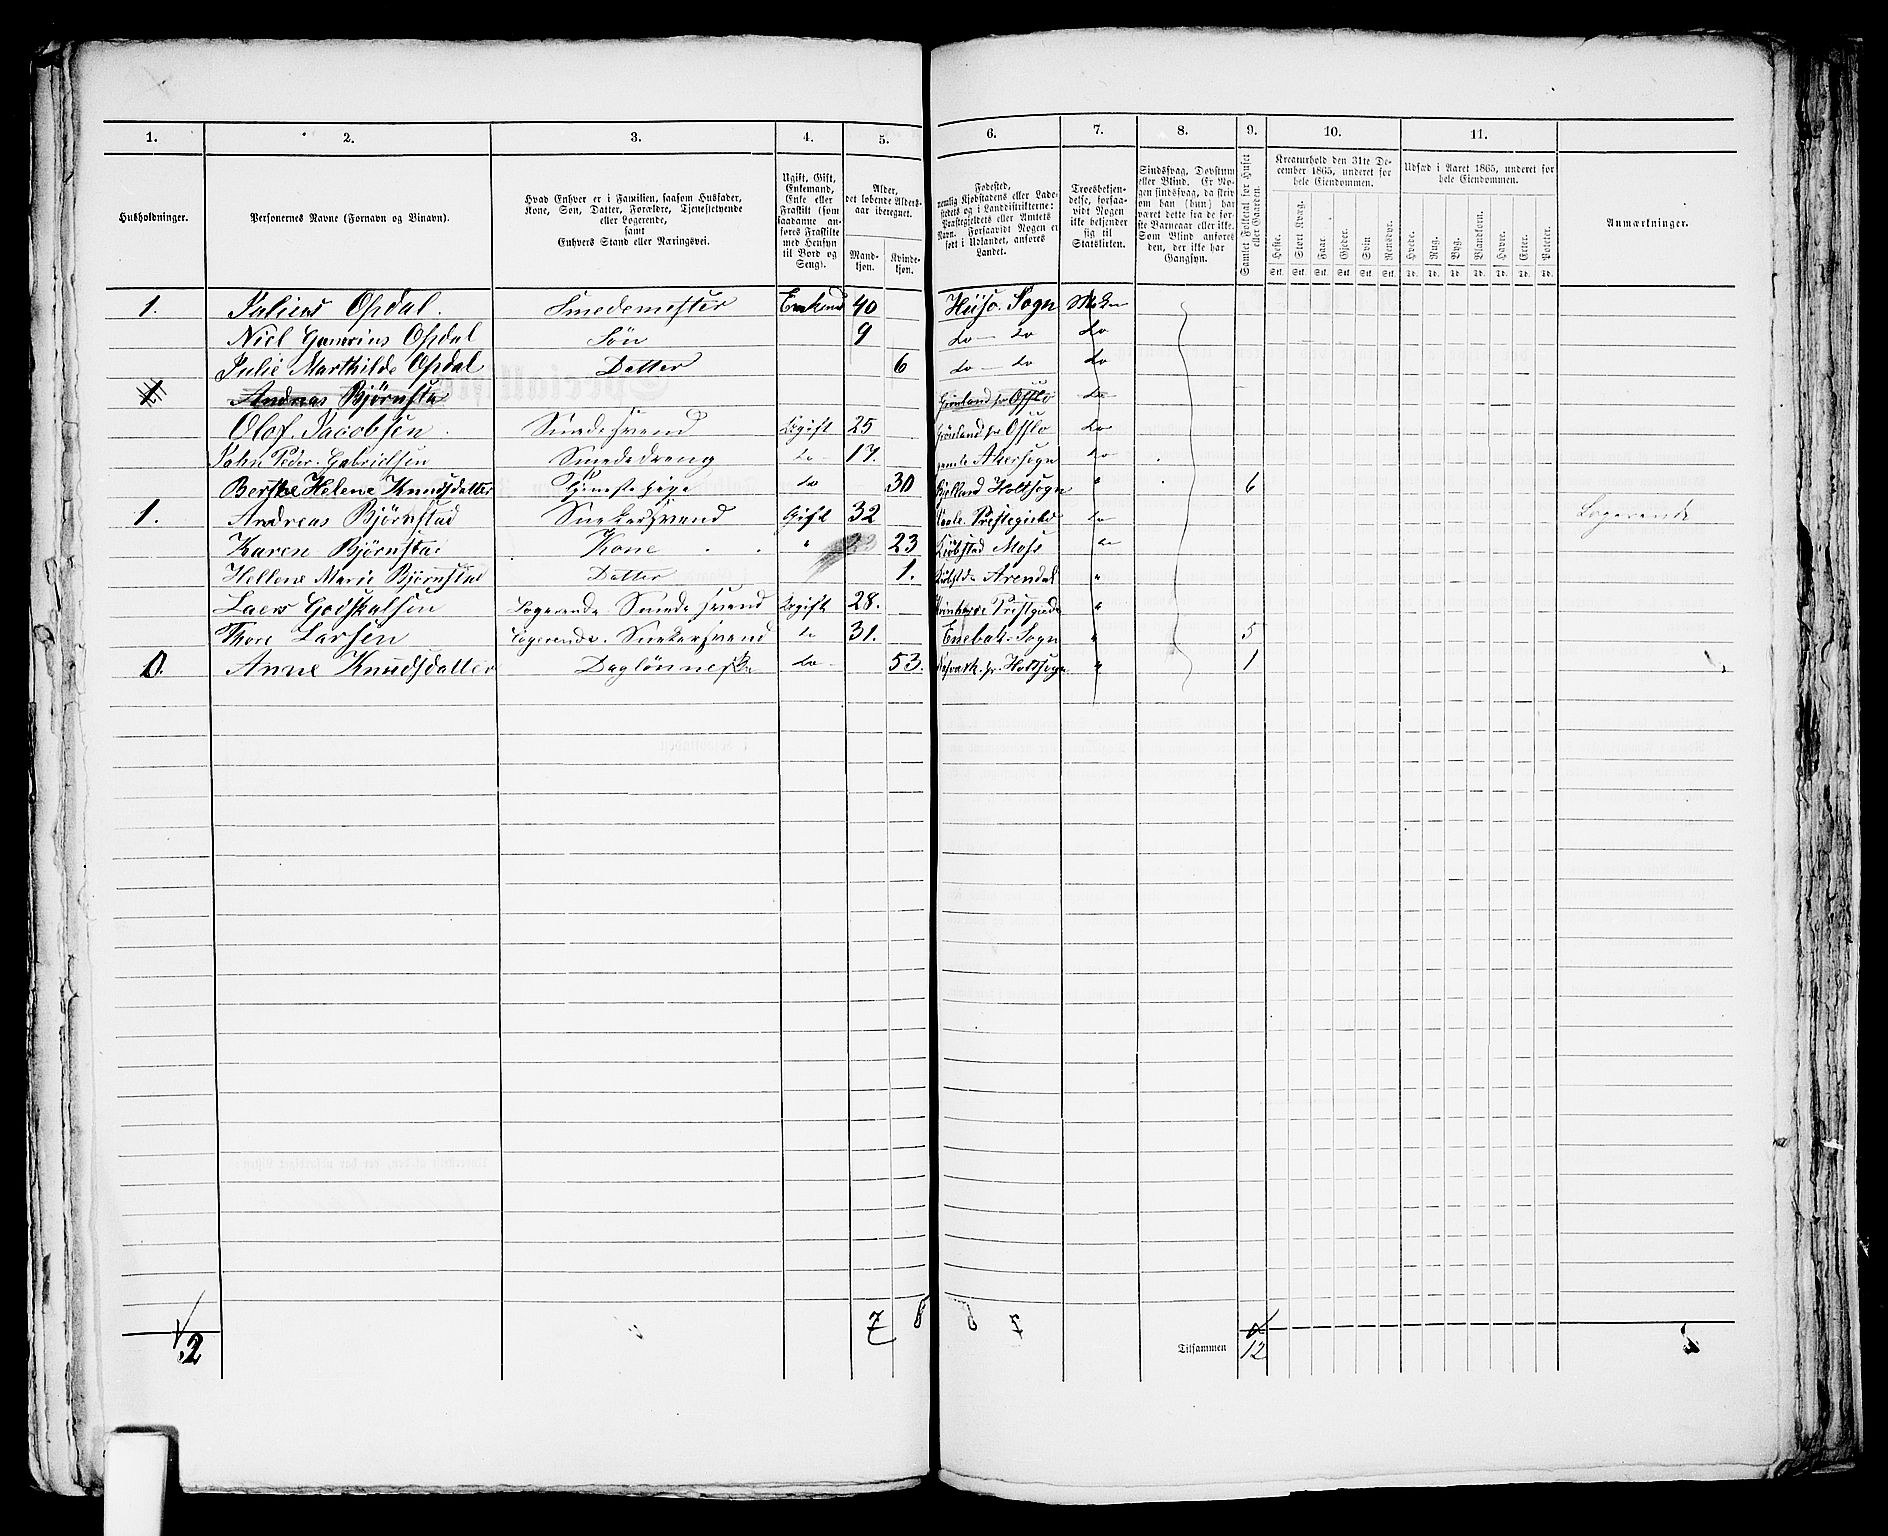 1. 2. 3. 4. 5. 6. 7. 8. 9. 10. 11.
Husholdninger.
Personernes Navne (Fornavn og Binavn).
Hvad Enhver er i Familien, saasom Husfader, Kone, Søn, Datter, Forældre, Tjenestetyende eller Logerende, samt Enhvers Stand eller Næringsvei.
Ugift, Gift, Enkemand, Enke eller Fraskilt (som saadanne anføres Fraskilte med Hensyn til Bord og Seng).
Alder, det løbende Aldersaar iberegnet.
Mandkjøn. Kvindekjøn.
Fødested, nemlig Kjøbstadens eller Ladestedets og i Landdistrikterne: Præstegjeldets eller Amtets Navn. Forsaavidt Nogen er født i Udlandet, anføres Landet.
Troesbekjendelse, forsaavidt Nogen ikke bekjender sig til Statskirken.
Sindssvag, Døvstum eller Blind. Er Nogen sindssvag, da skrives om han (hun) har været dette fra de første Barneaar eller ikke. Som Blind anføres den, der ikke har Gangsyn.
Samlet Folketal for Huset eller Gaarden.
Kreaturhold den 31te December 1865, underet for hele Eiendommen.
Heste. Stort Kvæg. Faar. Gjeder. Svin. Rensdyr.
Udsæd i Aaret 1865, underet for hele Eiendommen.
Hvede. Rug. Byg. Blandkorn. Havre. Erter. Poteter.
Anmærkninger.
Stk. Stk. Stk. Stk. Stk. Stk. Td. Td. Td. Td. Td. Td. Td.
1. Julius Opdal. Smedemester Enkemd 40 Hüsø Sogn
Niel Opdal Søn 9 do do do
Julie Marthilde Opdal Datter 6 do do do
1 Andreas Bjørnsta Grønland Opslo do
Olof Jacobsen. Smedesvend Ugift 25 Grønland Opslo do
John Peder Gabrielsen Smededreng do 17. gamle Akersogn do
Berthe Helene Knudsdatter Tjenestepige do 30 Holtsogn " 6
1. Andreas Bjørnstad Snekkersvend Gift 32 Prestegield do Logerende
Karen Bjørnstad Kone " 23 23 Kjøbstad Moss do
Hellene Marie Bjørnstad Datter 1. Arendal "
Laers Godskalsen Logerende Smedesvend Ugift 28. "
Thore Larsen Logerende. Snekkersvend do 31. Enebak Sogn " 5
0. Anne Knudsdatter Daglønneske do 53. Holtsogn " 1
2 7 6
Tilsammen 12